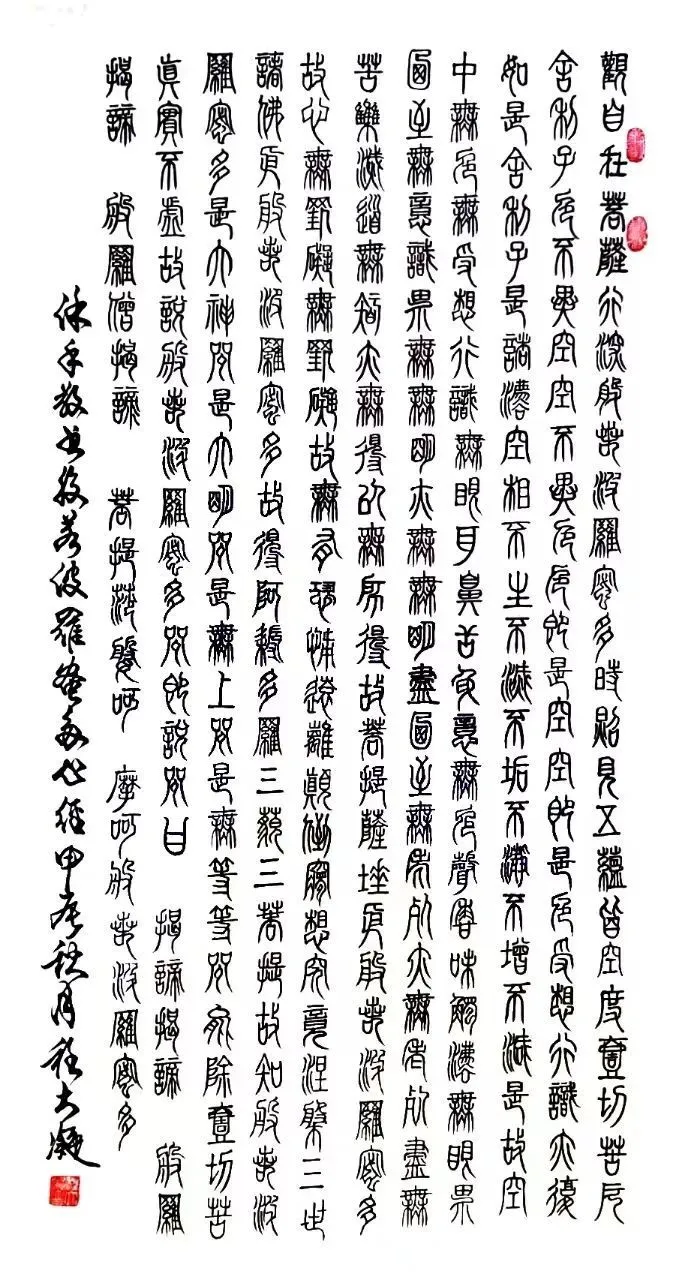 觀自在菩薩行深般若波羅蜜多時照見五蘊皆空度壹切苦厄
舍利子色不異空空不異色色即是空空即是色受想行識亦復
如是舍利子是諸法空相不生不滅不垢不淨不增不減是故空
中無色無受想行識無眼耳鼻舌身意無色聲香味觸法無眼界
乃至無意識界無無明亦無無明盡乃至無老死亦無老死盡無
苦集滅道無智亦無得以無所得故菩提薩埵依般若波羅蜜多
故心無罣礙無罣礙故無有恐怖遠離顛倒夢想究竟涅槃三世
諸佛依般若波羅蜜多故得阿耨多羅三藐三菩提故知般若波
羅蜜多是大神咒是大明咒是無上咒是無等等咒能除壹切苦
真實不虛故說般若波羅蜜多咒即說咒曰 揭諦揭諦 般羅
揭諦 般羅僧揭諦 菩提薩婆訶 摩訶般若波羅蜜多
敬書般若波羅蜜多心經甲辰秋月程大凝